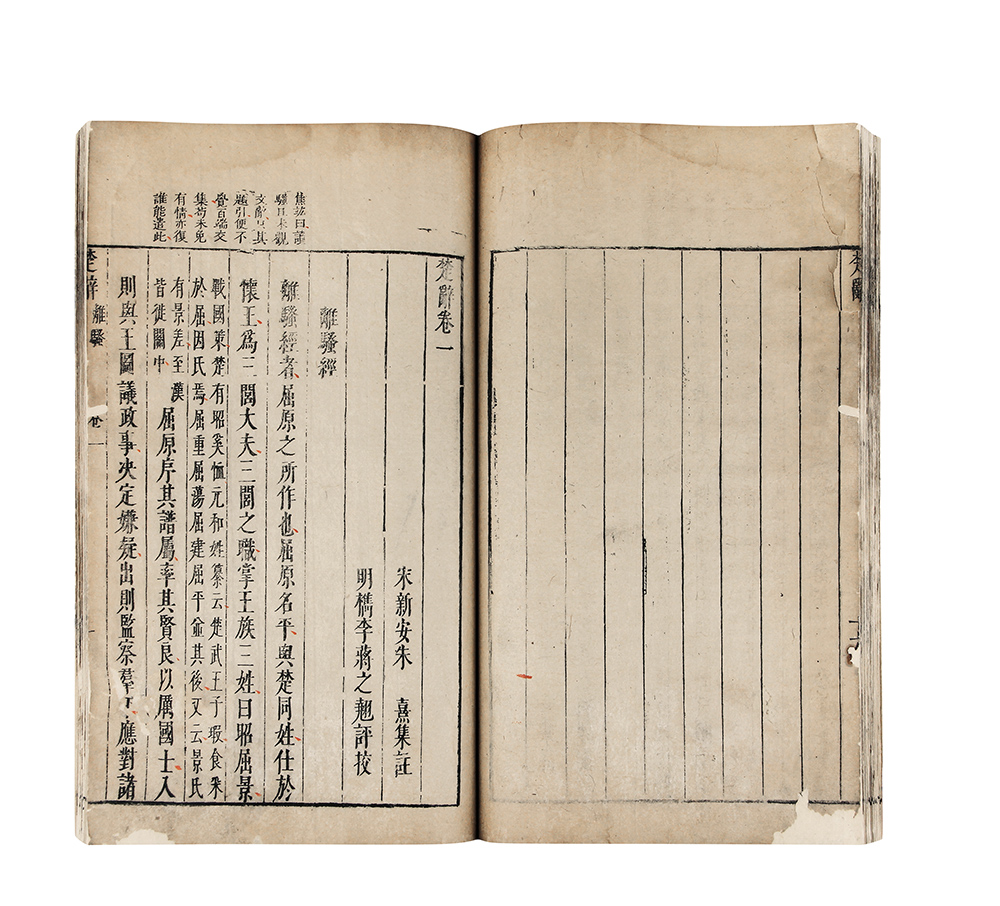 楚辭
焦竑曰讀
騷且未觀
文辭其
題引便不
覺百端交
集苟未免
有情亦復
誰能遣此
楚辭卷一
宋新安朱　熹集註
明檇李蔣之翹評校
離騷經
離騷經者屈原之所作也屈原名平與楚同姓仕於
懷王爲三閭大夫三閭之職掌王族三姓曰昭屈景
戰國策楚有昭奚恤元和姓纂云楚武王子瑕食采
於屈因氏焉屈重屈蕩屈建屈平並其後又云景氏
有景差至漢
皆徙關中
屈原序其譜屬率其賢良以厲國士入
則與王圖議政事决定嫌疑出則監察羣下應對諸
楚辭 離騷 卷一 一